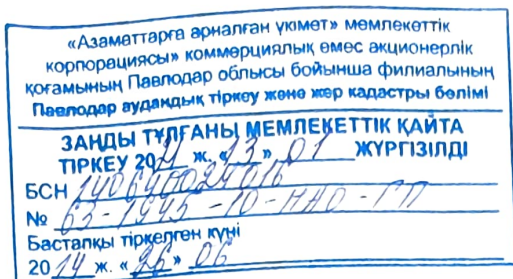 «Азаматтарға арналған үкімет» мемлекеттік
корпорациясы» коммерциялық емес акционерлік
қоғамының Павлодар облысы бойынша филиалының
Павлодар аудандық тіркеу және жер кадастры бөлімі
ЗАҢДЫ ТҰЛҒАНЫ МЕМЛЕКЕТТІК ҚАЙТА
ТІРКЕУ 2021 ж. «13» 01 ЖҮРГІЗІЛДІ
БСН 140640024016
№ 63-1945-10-НАО-ГП
Бастапқы тіркелген күні
2014 ж. «26» 06